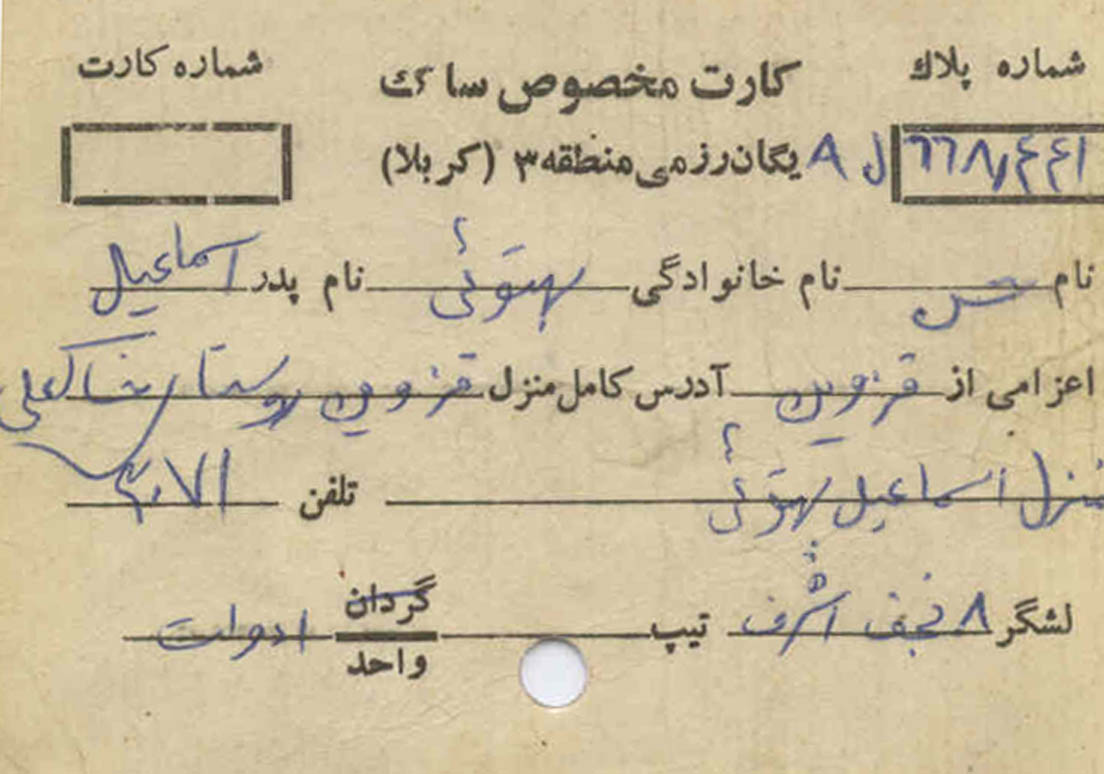 شماره پلاك کارت مخصوص ساک شماره کارت
۶۶۸،۴۴۱ ل ۸ یگان رزمی منطقه ۳ (کربلا)
نام حسن نام خانوادگی بهتوئی نام پدر اسماعیل
اعزامی از قزوین آدرس کامل منزل قزوین روستا
منزل اسماعیل بهتوئی تلفن ۳۰۷۱
لشگر ۸ نجف اشرف تیپ گردان
واحد ادوات